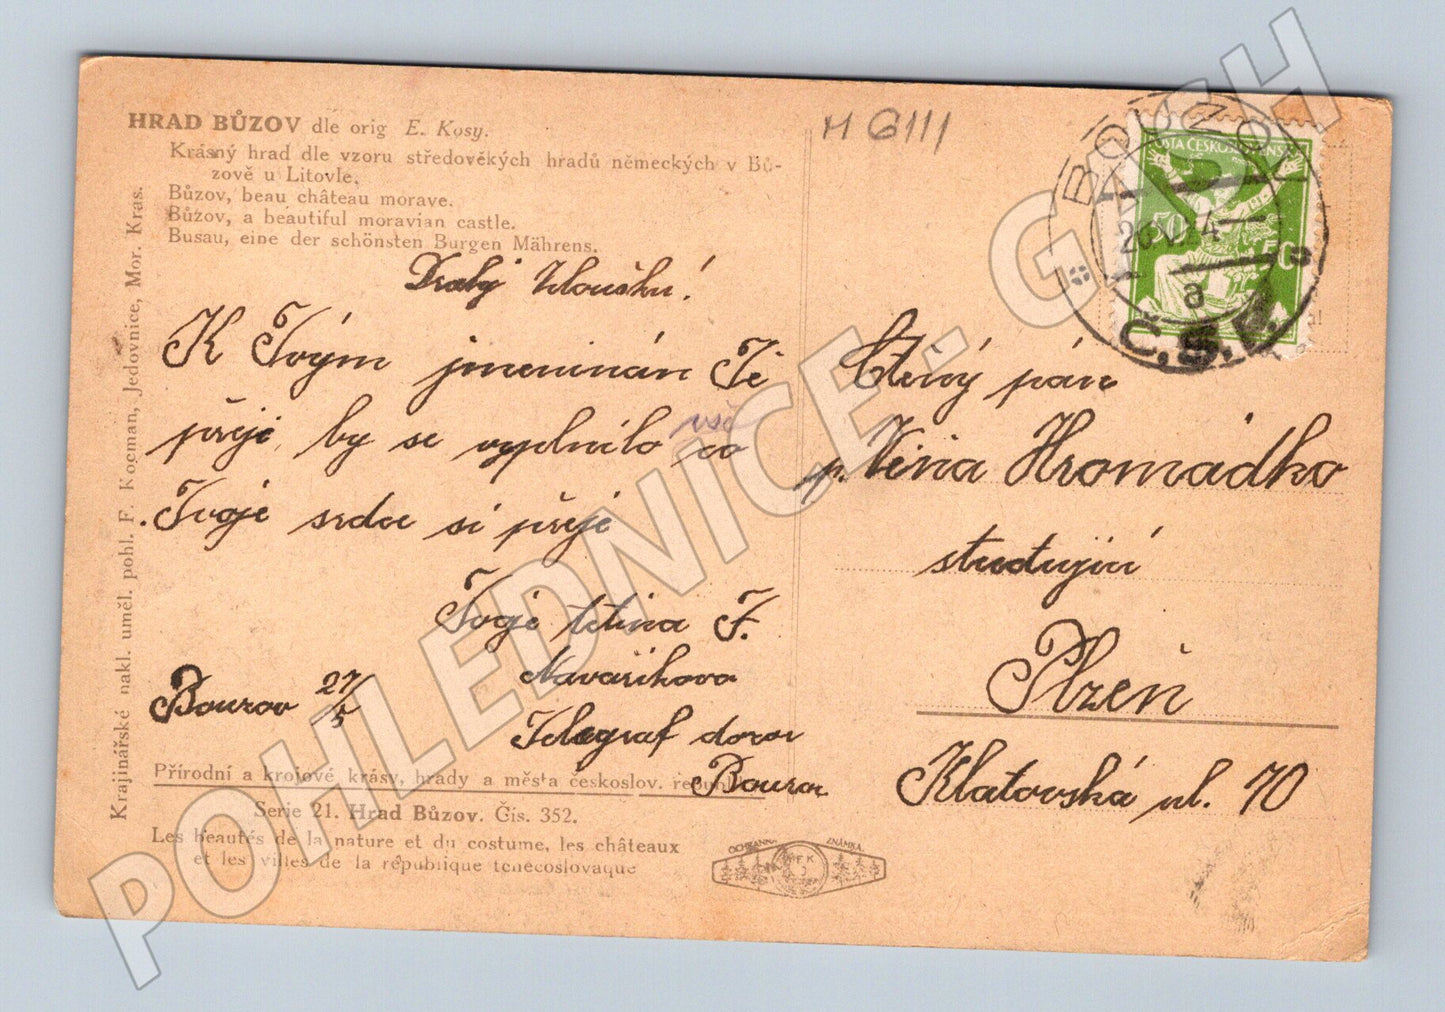 HRAD BŮZOV dle orig E. Kosy.
Krásný hrad dle vzoru středověkých hradů německých v Bů-
zově u Litovle.
Bůzov, beau château morave.
Bůzov, a beautiful moravian castle.
Busau, eine der schönsten Burgen Mährens.
Krajinářské nakl. uměl. pohl. F. Kocman, Jedovnice, Mor. Kras.
Drahý
K Tvým jmeninám Ti
přeji, by se vyplnilo vše co
Tvoje srdce si přeje
Tvoje tetina F.
Telegraf
27/5
Přírodní a krojové krásy, hrady a města českoslov. republiky
Serie 21. Hrad Bůzov. Čis. 352.
Les beautés de la nature et du costume, les châteaux
et les villes de la république tchécoslovaque
OCHRANNÁ ZNÁMKA
FK
J
M 6111
POŠTA ČESKOSLOVENSKÁ
a
Č.S.R.
Ctěný pán
p. Hromádko
studující
Plzeň
Klatovská ul. 70
POHLEDNICE - GASH